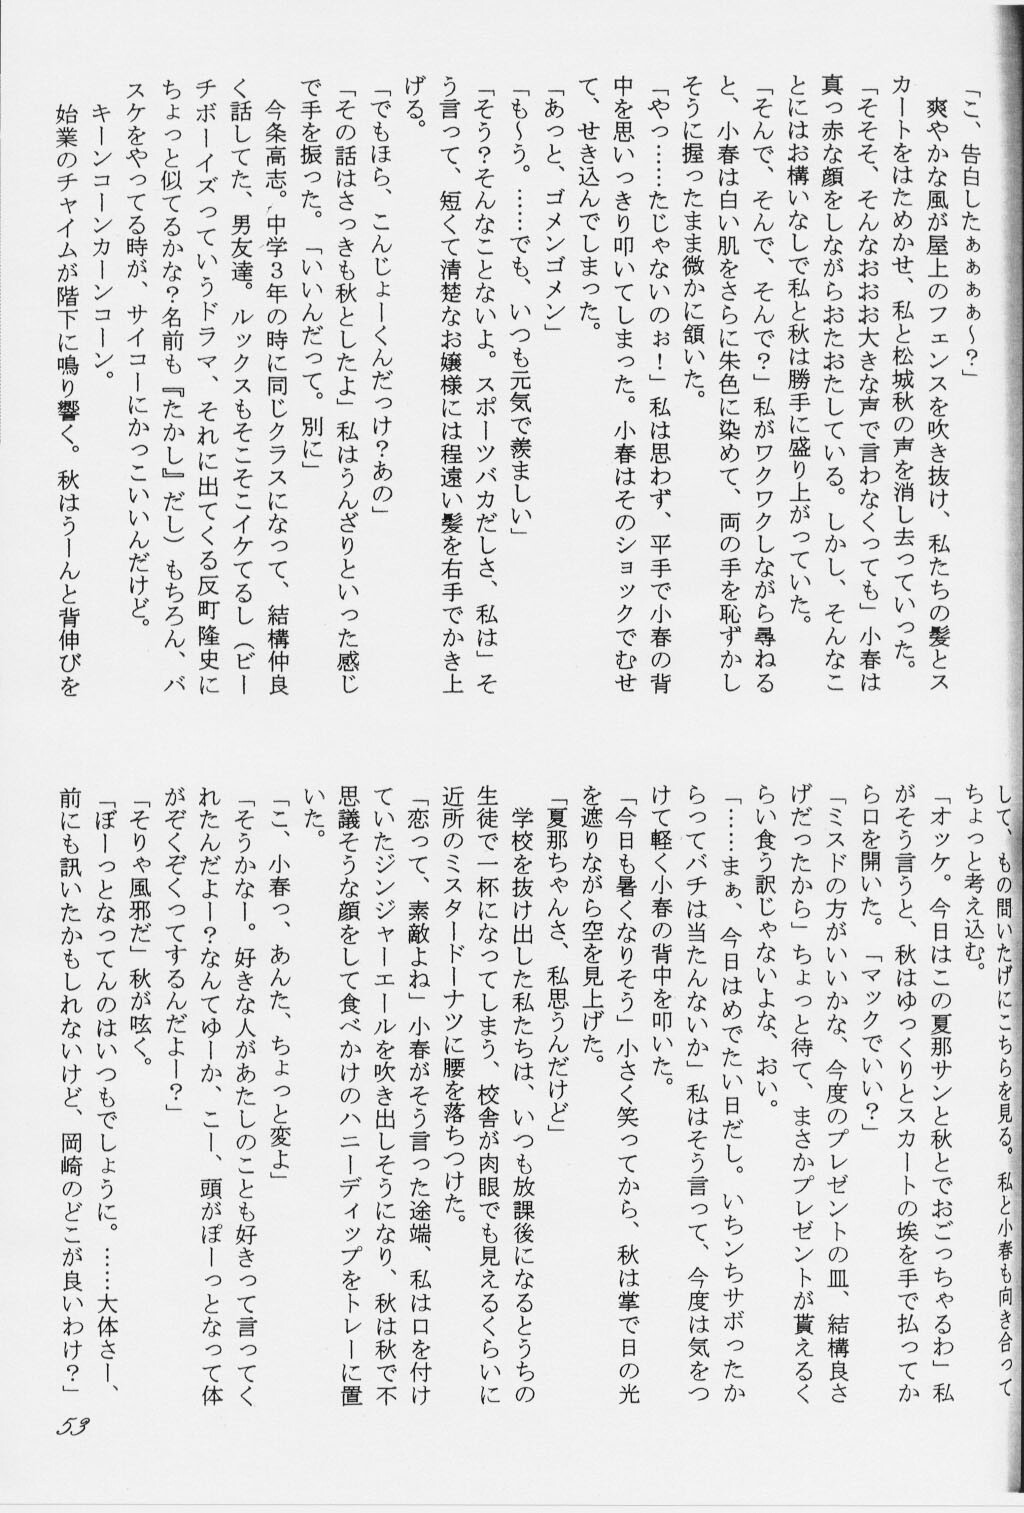 「こ、告白したぁぁぁぁ～？」
　爽やかな風が屋上のフェンスを吹き抜け、私たちの髪とス
カートをはためかせ、私と松城秋の声を消し去っていった。
「そそそ、そんなおおお大きな声で言わなくっても」小春は
真っ赤な顔をしながらおたおたしている。しかし、そんなこ
とにはお構いなしで私と秋は勝手に盛り上がっていた。
「そんで、そんで、そんで？」私がワクワクしながら尋ねる
と、小春は白い肌をさらに朱色に染めて、両の手を恥ずかし
そうに握ったまま微かに頷いた。
「やっ……たじゃないのぉ！」私は思わず、平手で小春の背
中を思いっきり叩いてしまった。小春はそのショックでむせ
て、せき込んでしまった。
「あっと、ゴメンゴメン」
「も～う。……でも、いつも元気で羨ましい」
「そう？そんなことないよ。スポーツバカだしさ、私は」そ
う言って、短くて清楚なお嬢様には程遠い髪を右手でかき上
げる。
「でもほら、こんじょーくんだっけ？あの」
「その話はさっきも秋としたよ」私はうんざりといった感じ
で手を振った。「いいんだって。別に」
　今条高志。中学３年の時に同じクラスになって、結構仲良
く話してた、男友達。ルックスもそこそこイケてるし（ビー
チボーイズっていうドラマ、それに出てくる反町隆史に
ちょっと似てるかな？名前も『たかし』だし）もちろん、バ
スケをやってる時が、サイコーにかっこいいんだけど。
　キーンコーンカーンコーン。
　始業のチャイムが階下に鳴り響く。秋はうーんと背伸びを
して、もの問いたげにこちらを見る。私と小春も向き合って
ちょっと考え込む。
「オッケ。今日はこの夏那サンと秋とでおごっちゃるわ」私
がそう言うと、秋はゆっくりとスカートの埃を手で払ってか
ら口を開いた。「マックでいい？」
「ミスドの方がいいかな、今度のプレゼントの皿、結構良さ
げだったから」ちょっと待て、まさかプレゼントが貰えるく
らい食う訳じゃないよな、おい。
「……まぁ、今日はめでたい日だし。いちンちサボったか
らってバチは当たんないか」私はそう言って、今度は気をつ
けて軽く小春の背中を叩いた。
「今日も暑くなりそう」小さく笑ってから、秋は掌で日の光
を遮りながら空を見上げた。
「夏那ちゃんさ、私思うんだけど」
　学校を抜け出した私たちは、いつも放課後になるとうちの
生徒で一杯になってしまう、校舎が肉眼でも見えるくらいに
近所のミスタードーナツに腰を落ちつけた。
「恋って、素敵よね」小春がそう言った途端、私は口を付け
ていたジンジャーエールを吹き出しそうになり、秋は秋で不
思議そうな顔をして食べかけのハニーディップをトレーに置
いた。
「こ、小春っ、あんた、ちょっと変よ」
「そうかなー。好きな人があたしのことも好きって言ってく
れたんだよー？なんてゆーか、こー、頭がぽーっとなって体
がぞくぞくってするんだよー？」
「そりゃ風邪だ」秋が呟く。
「ぼーっとなってんのはいつもでしょうに。……大体さー、
前にも訊いたかもしれないけど、岡崎のどこが良いわけ？」
53